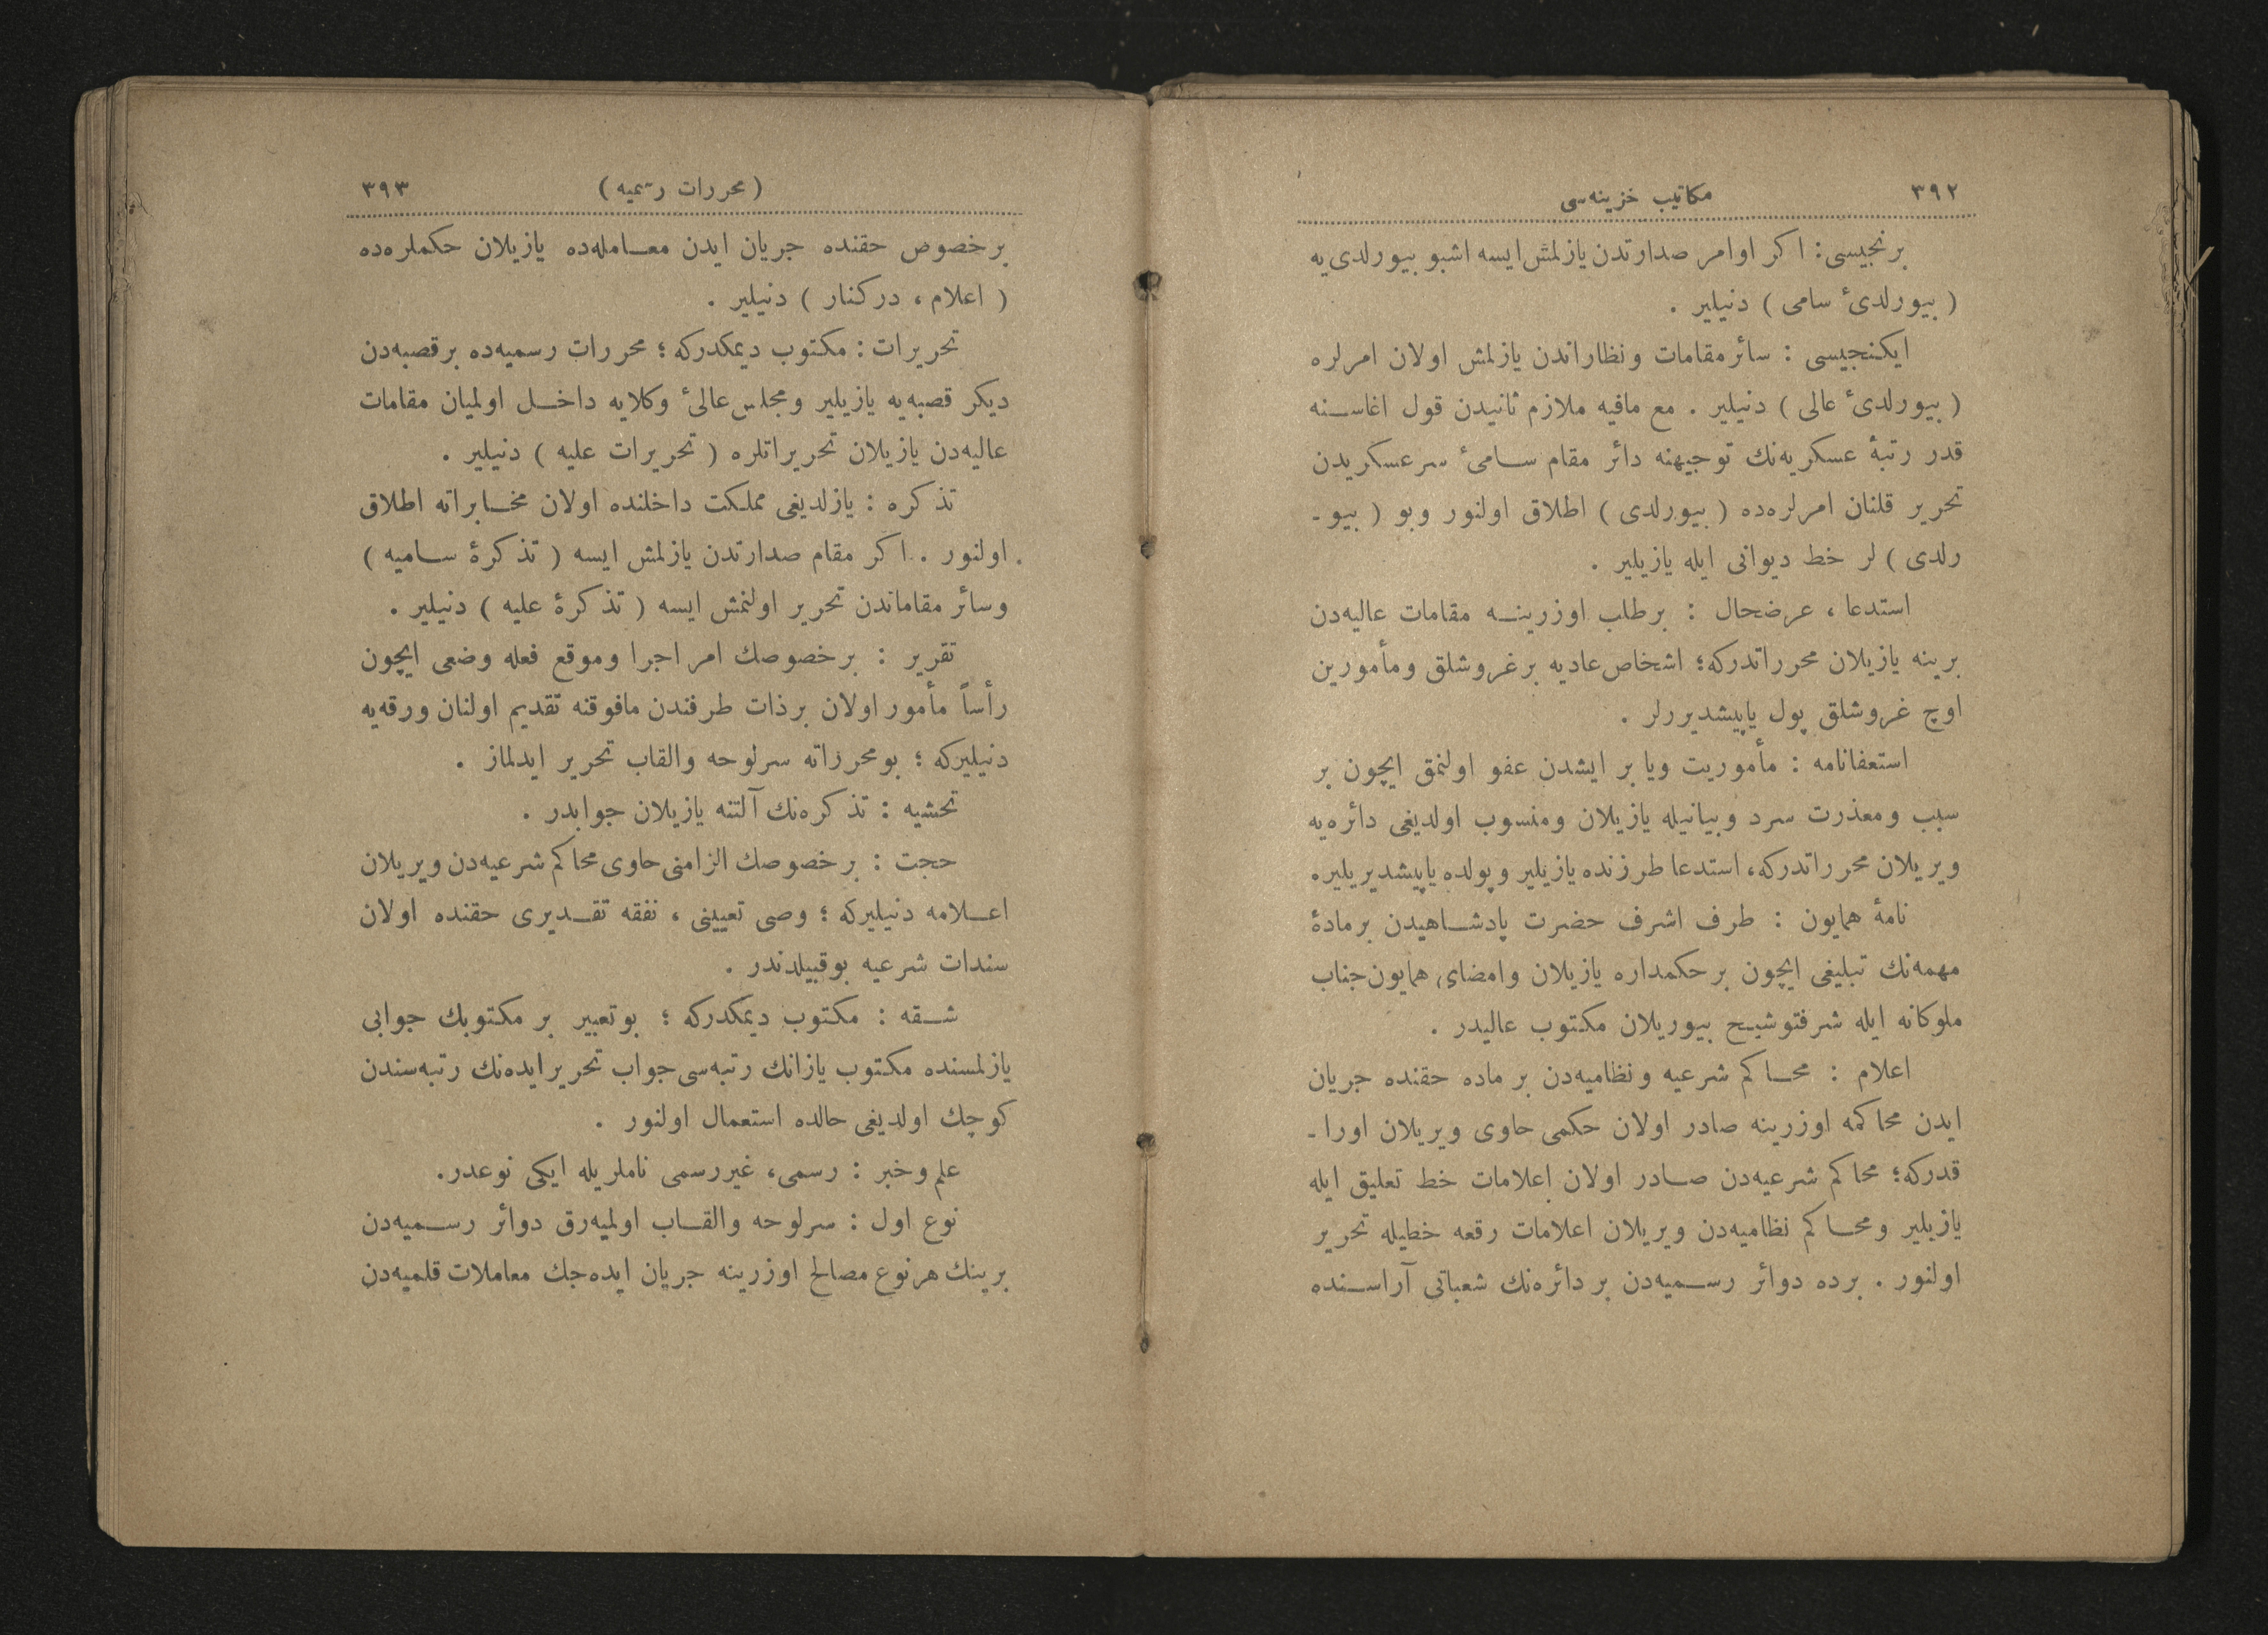 ٣٩٢ مكاتيب خزينه‌سى
برنجيسى: اكر اوامر صدارتدن يازلمش ايسه اشبو بيورلدى‌يه
( بيورلدئ سامى ) دنيلير .
ايكنجيسى : سائر مقامات ونظاراندن يازلمش اولان امرلره
( بيورلدئ عالى ) دنيلير . مع مافيه ملازم ثانيدن قول اغاسنه
قدر رتبۀ عسكريه‌نك توجيهنه دائر مقام سامئ سرعسكريدن
تحرير قلنان امرلره‌ده ( بيورلدى ) اطلاق اولنور وبو ( بيو -
رلدى ) لر خط ديوانى ايله يازيلير .
استدعا ، عرضحال : برطلب اوزرينه مقامات عاليه‌دن
برينه يازيلان محرراتدركه؛ اشخاص عاديه برغروشلق ومأمورين
اوچ غروشلق پول ياپيشديررلر .
استعفانامه : مأموريت ويا بر ايشدن عفو اولنمق ايچون بر
سبب ومعذرت سرد وبيانيله يازيلان ومنسوب اولديغى دائره‌يه
ويريلان محرراتدركه، استدعا طرزنده يازيلير وپولده ياپيشديريلير.
نامۀ همايون : طرف اشرف حضرت پادشاهيدن برمادۀ
مهمه‌نك تبليغى ايچون برحكمداره يازيلان وامضاى همايون جناب
ملوكانه ايله شرفتوشيح بيوريلان مكتوب عاليدر .
اعلام : محاكم شرعيه ونظاميه‌دن بر ماده حقنده جريان
ايدن محاكمه اوزرينه صادر اولان حكمى حاوى ويريلان اورا -
قدركه؛ محاكم شرعيه‌دن صادر اولان اعلامات خط تعليق ايله
يازيلير ومحاكم نظاميه‌دن ويريلان اعلامات رقعه خطيله تحرير
اولنور . برده دوائر رسميه‌دن بر دائره‌نك شعباتى آراسنده
(محررات رسميه) ٣٩٣
برخصوص حقنده جريان ايدن معامله‌ده يازيلان حكملره‌ده
( اعلام ، دركنار ) دنيلير .
تحريرات : مكتوب ديمكدركه ؛ محررات رسميه‌ده برقصبه‌دن
ديكر قصبه‌يه يازيلير ومجلس عالئ وكلايه داخل اولميان مقامات
عاليه‌دن يازيلان تحريراتلره ( تحريرات عليه ) دنيلير .
تذكره : يازلديغى مملكت داخلنده اولان مخابراته اطلاق
اولنور . اكر مقام صدارتدن يازلمش ايسه ( تذكرۀ ساميه )
وسائر مقاماندن تحرير اولنمش ايسه ( تذكرۀ عليه ) دنيلير .
تقرير : برخصوصك امر اجرا وموقع فعله وضعى ايچون
رأساً مأمور اولان برذات طرفندن مافوقنه تقديم اولنان ورقه‌يه
دنيليركه ؛ بومحرراته سرلوحه والقاب تحرير ايدلماز .
تحشيه : تذكره‌نك آلتنه يازيلان جوابدر .
حجت : برخصوصك الزامنى حاوى محاكم شرعيه‌دن ويريلان
اعلامه دنيليركه ؛ وصى تعيينى ، نفقه تقديرى حقنده اولان
سندات شرعيه بوقبيلدندر .
شقه : مكتوب ديمكدركه ؛ بوتعبير بر مكتوبك جوابى
يازلمسنده مكتوب يازانك رتبه‌سى جواب تحرير ايده‌نك رتبه‌سندن
كوچك اولديغى حالده استعمال اولنور .
علم وخبر : رسمى، غيررسمى ناملريله ايكى نوعدر.
نوع اول : سرلوحه والقاب اولميه‌رق دوائر رسميه‌دن
برينك هرنوع مصالح اوزرينه جريان ايده‌جك معاملات قلميه‌دن